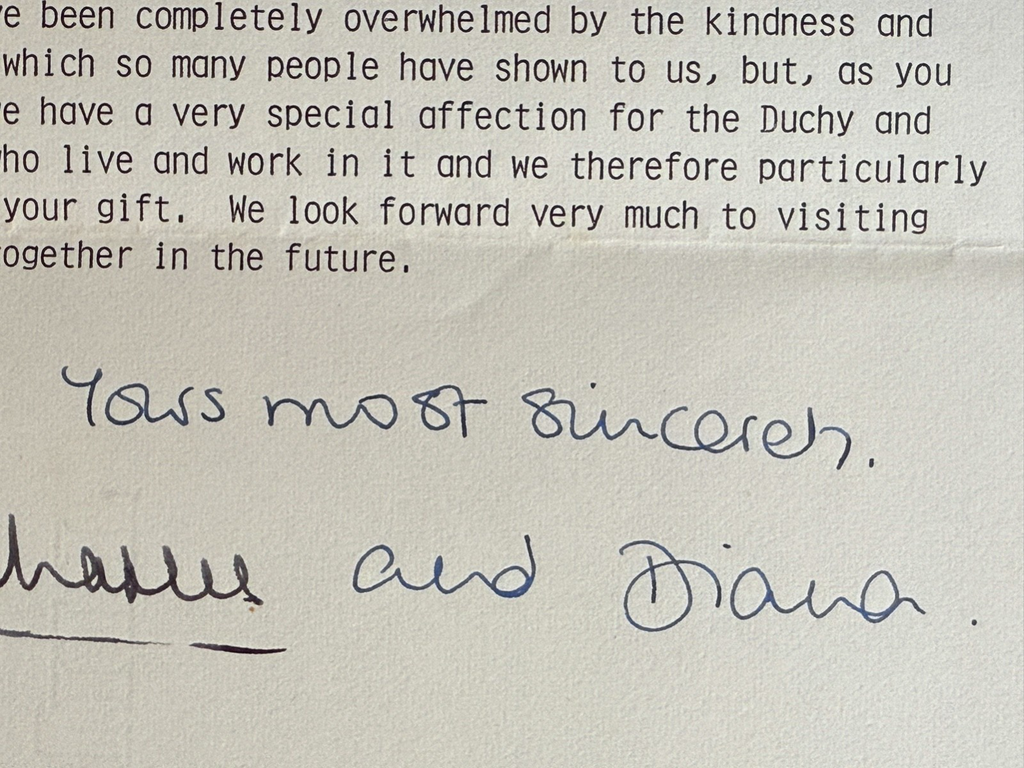 e been completely overwhelmed by the kindness and
which so many people have shown to us, but, as you
e have a very special affection for the Duchy and
ho live and work in it and we therefore particularly
your gift. We look forward very much to visiting
ogether in the future.
Yours most sincerely.
harles and Diana.